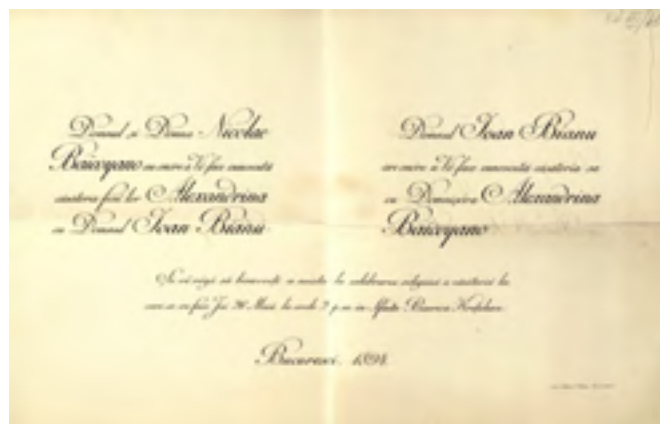 Domnul și Doamna Nicolae
Baicoyano au onore a Vĕ face cunoscută
căsătoria fiicei lor Alexandrina
cu Domnul Ioan Bianu
Domnul Ioan Bianu
are onore a Vĕ face cunoscută căsătoria sa
cu Domnișóra Alexandrina
Baicoyano
Sunteți rugați să binevoiți a asista la celebrarea religiósă a căsătoriei
care se va face Joi 26 Maiŭ la orele 7 p.m. in Sfânta Biserica
București, 1894